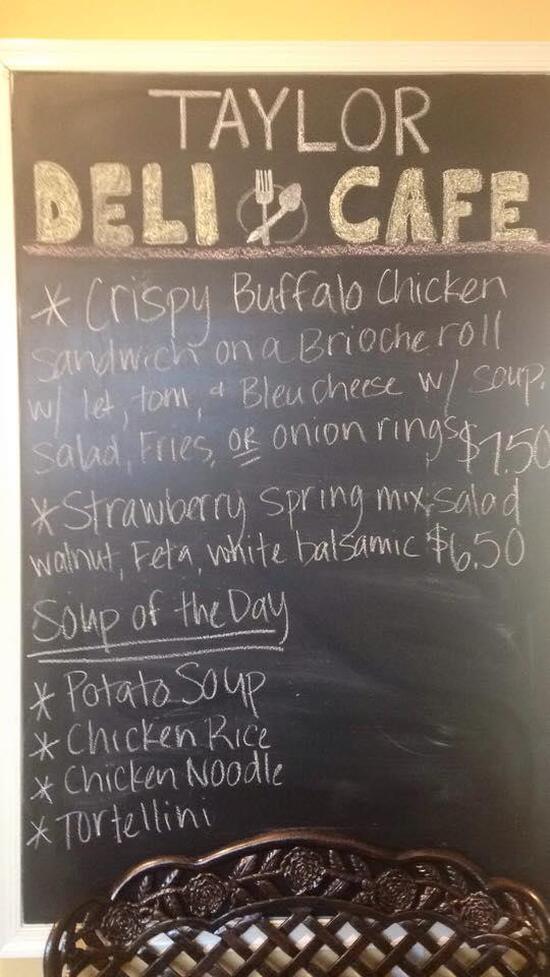 TAYLOR
DELI CAFE
* Crispy Buffalo Chicken
Sandwich on a Brioche roll
w/ let, tom, & Bleu cheese w/ soup,
Salad, Fries, OR onion rings $7.50
* Strawberry spring mix, salad
walnut, Feta, white balsamic $6.50
Soup of the Day
* Potato Soup
* Chicken Rice
* Chicken Noodle
* Tortellini